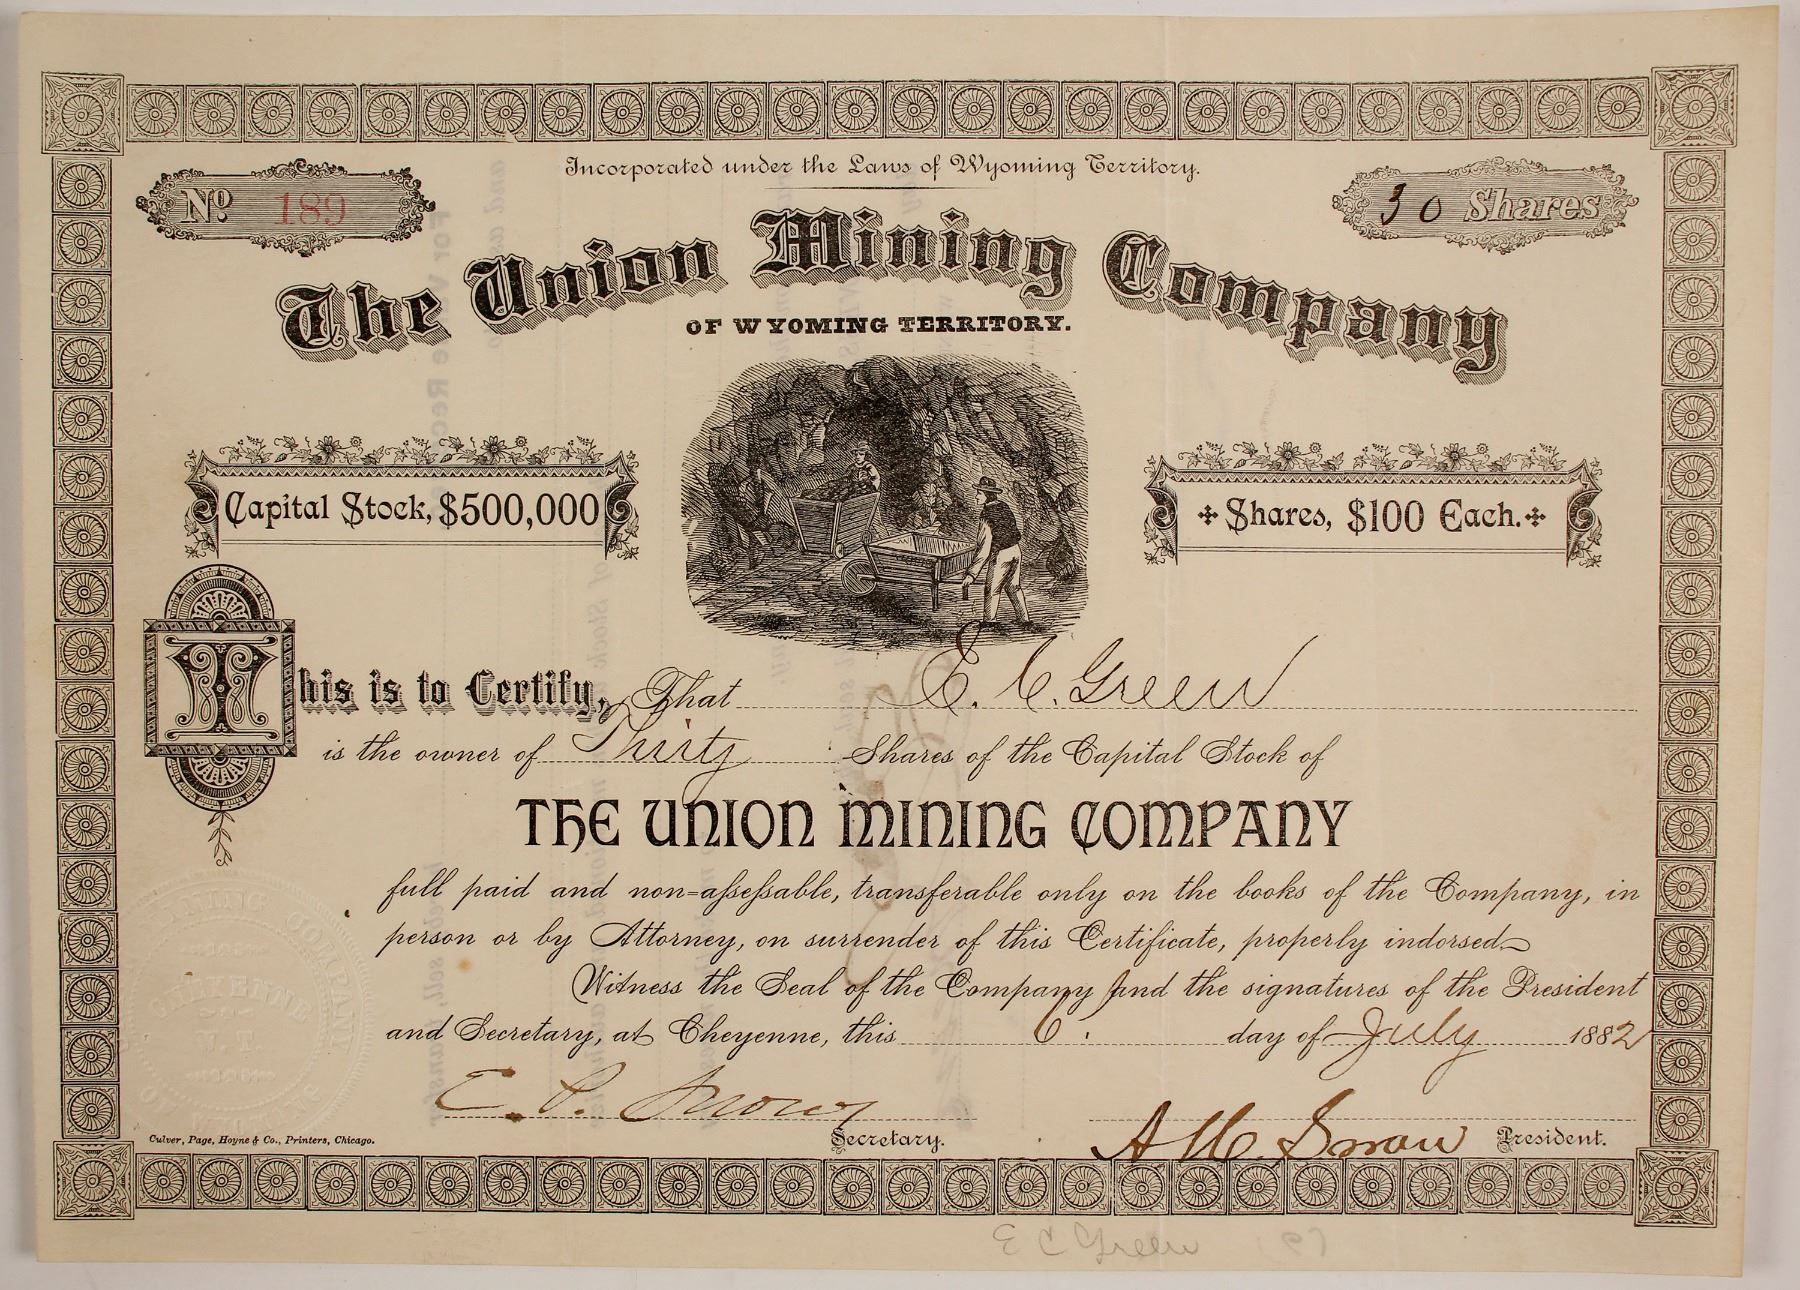 Incorporated under the Laws of Wyoming Territory.
No 189
30 Shares
The Union Mining Company
OF WYOMING TERRITORY.
Capital Stock, $500,000
Shares, $100 Each.
This is to Certify, That E. C. Green
is the owner of Thirty Shares of the Capital Stock of
THE UNION MINING COMPANY
full paid and non-assessable, transferable only on the books of the Company, in
person or by Attorney, on surrender of this Certificate, properly indorsed.
Witness the Seal of the Company and the signatures of the President
and Secretary, at Cheyenne, this 6. day of July 1882
Secretary.
President.
MINING COMPANY
CHEYENNE
W. T.
OF WYOMING
Culver, Page, Hoyne & Co., Printers, Chicago.
E C Green